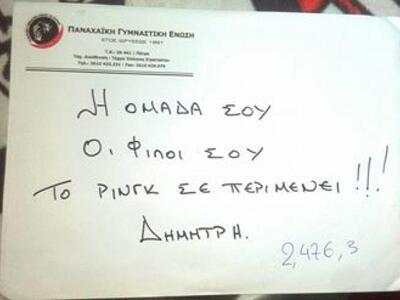 ΠΑΝΑΧΑΪΚΗ ΓΥΜΝΑΣΤΙΚΗ ΕΝΩΣΗ
ΕΤΟΣ ΙΔΡΥΣΕΩΣ 1891
Η ΟΜΑΔΑ ΣΟΥ
ΟΙ ΦΙΛΟΙ ΣΟΥ
ΤΟ ΡΙΝΓΚ ΣΕ ΠΕΡΙΜΕΝΕΙ!!!
ΔΗΜΗΤΡΗ.
2,476,3